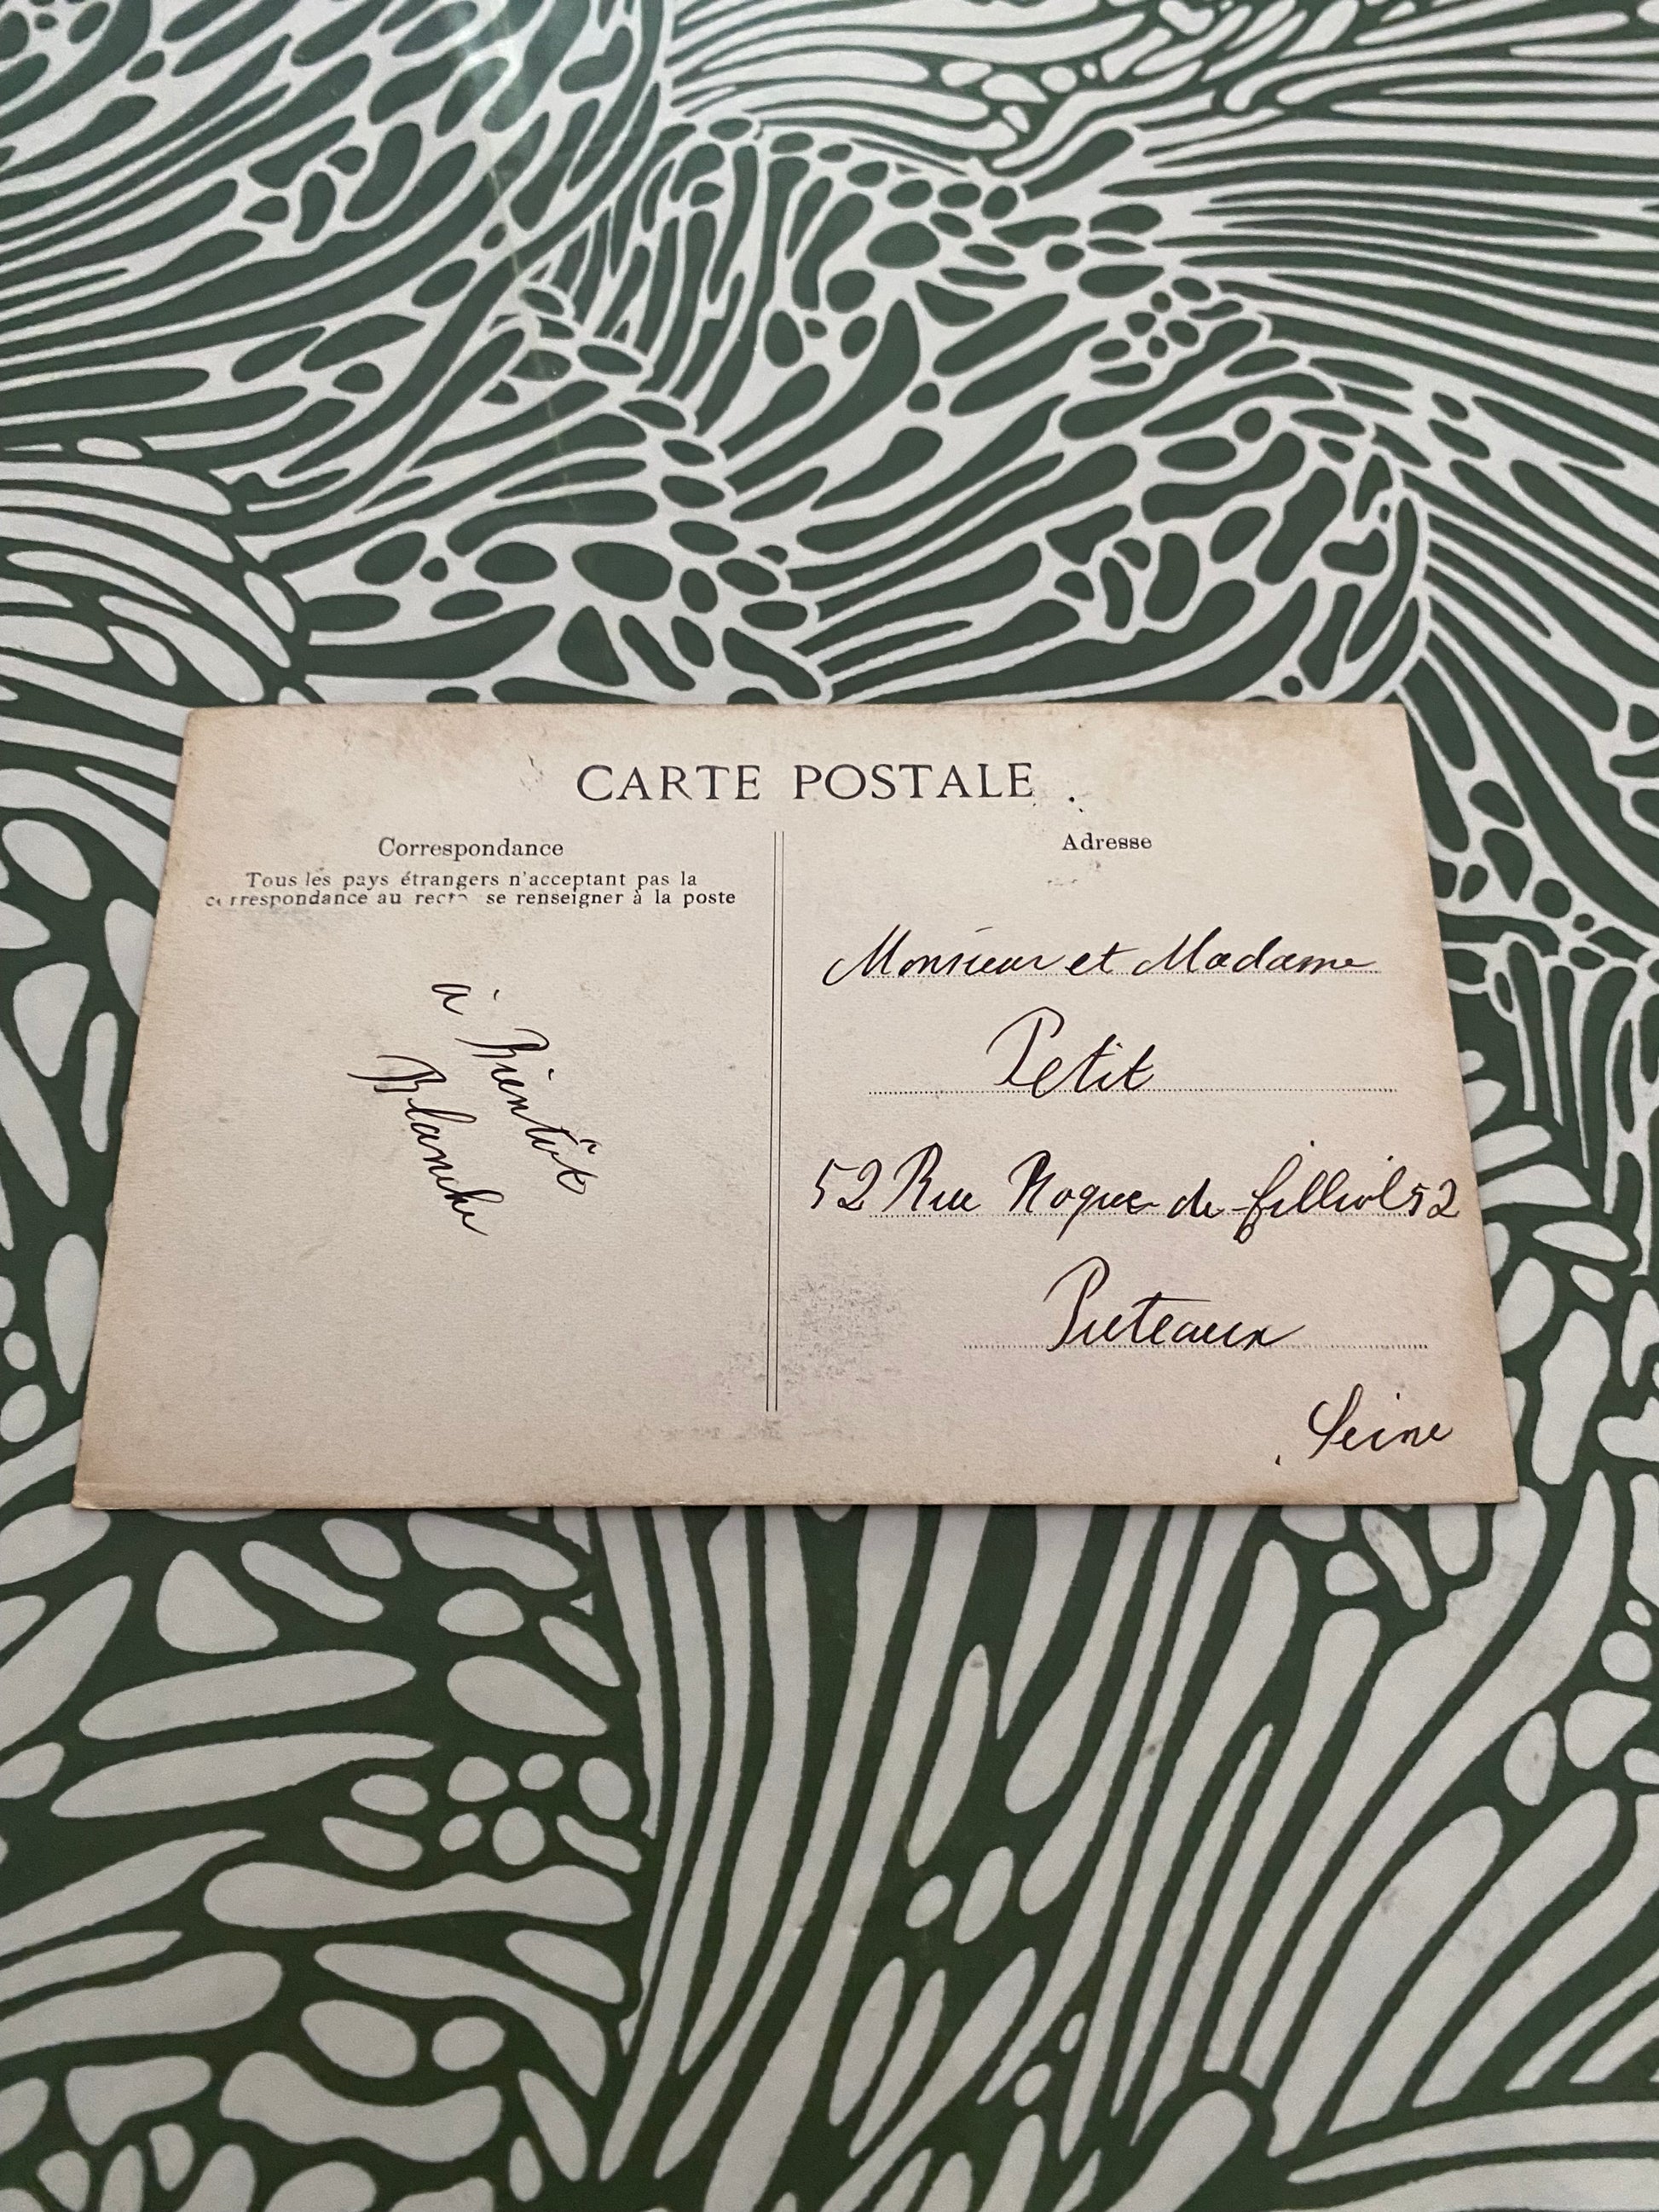 CARTE POSTALE
Correspondance
Tous les pays étrangers n'acceptant pas la
correspondance au recto se renseigner à la poste
à Bientôt
Blanche
Adresse
Monsieur et Madame
Petit
52 Rue Roque de filliol 52
Puteaux
Seine